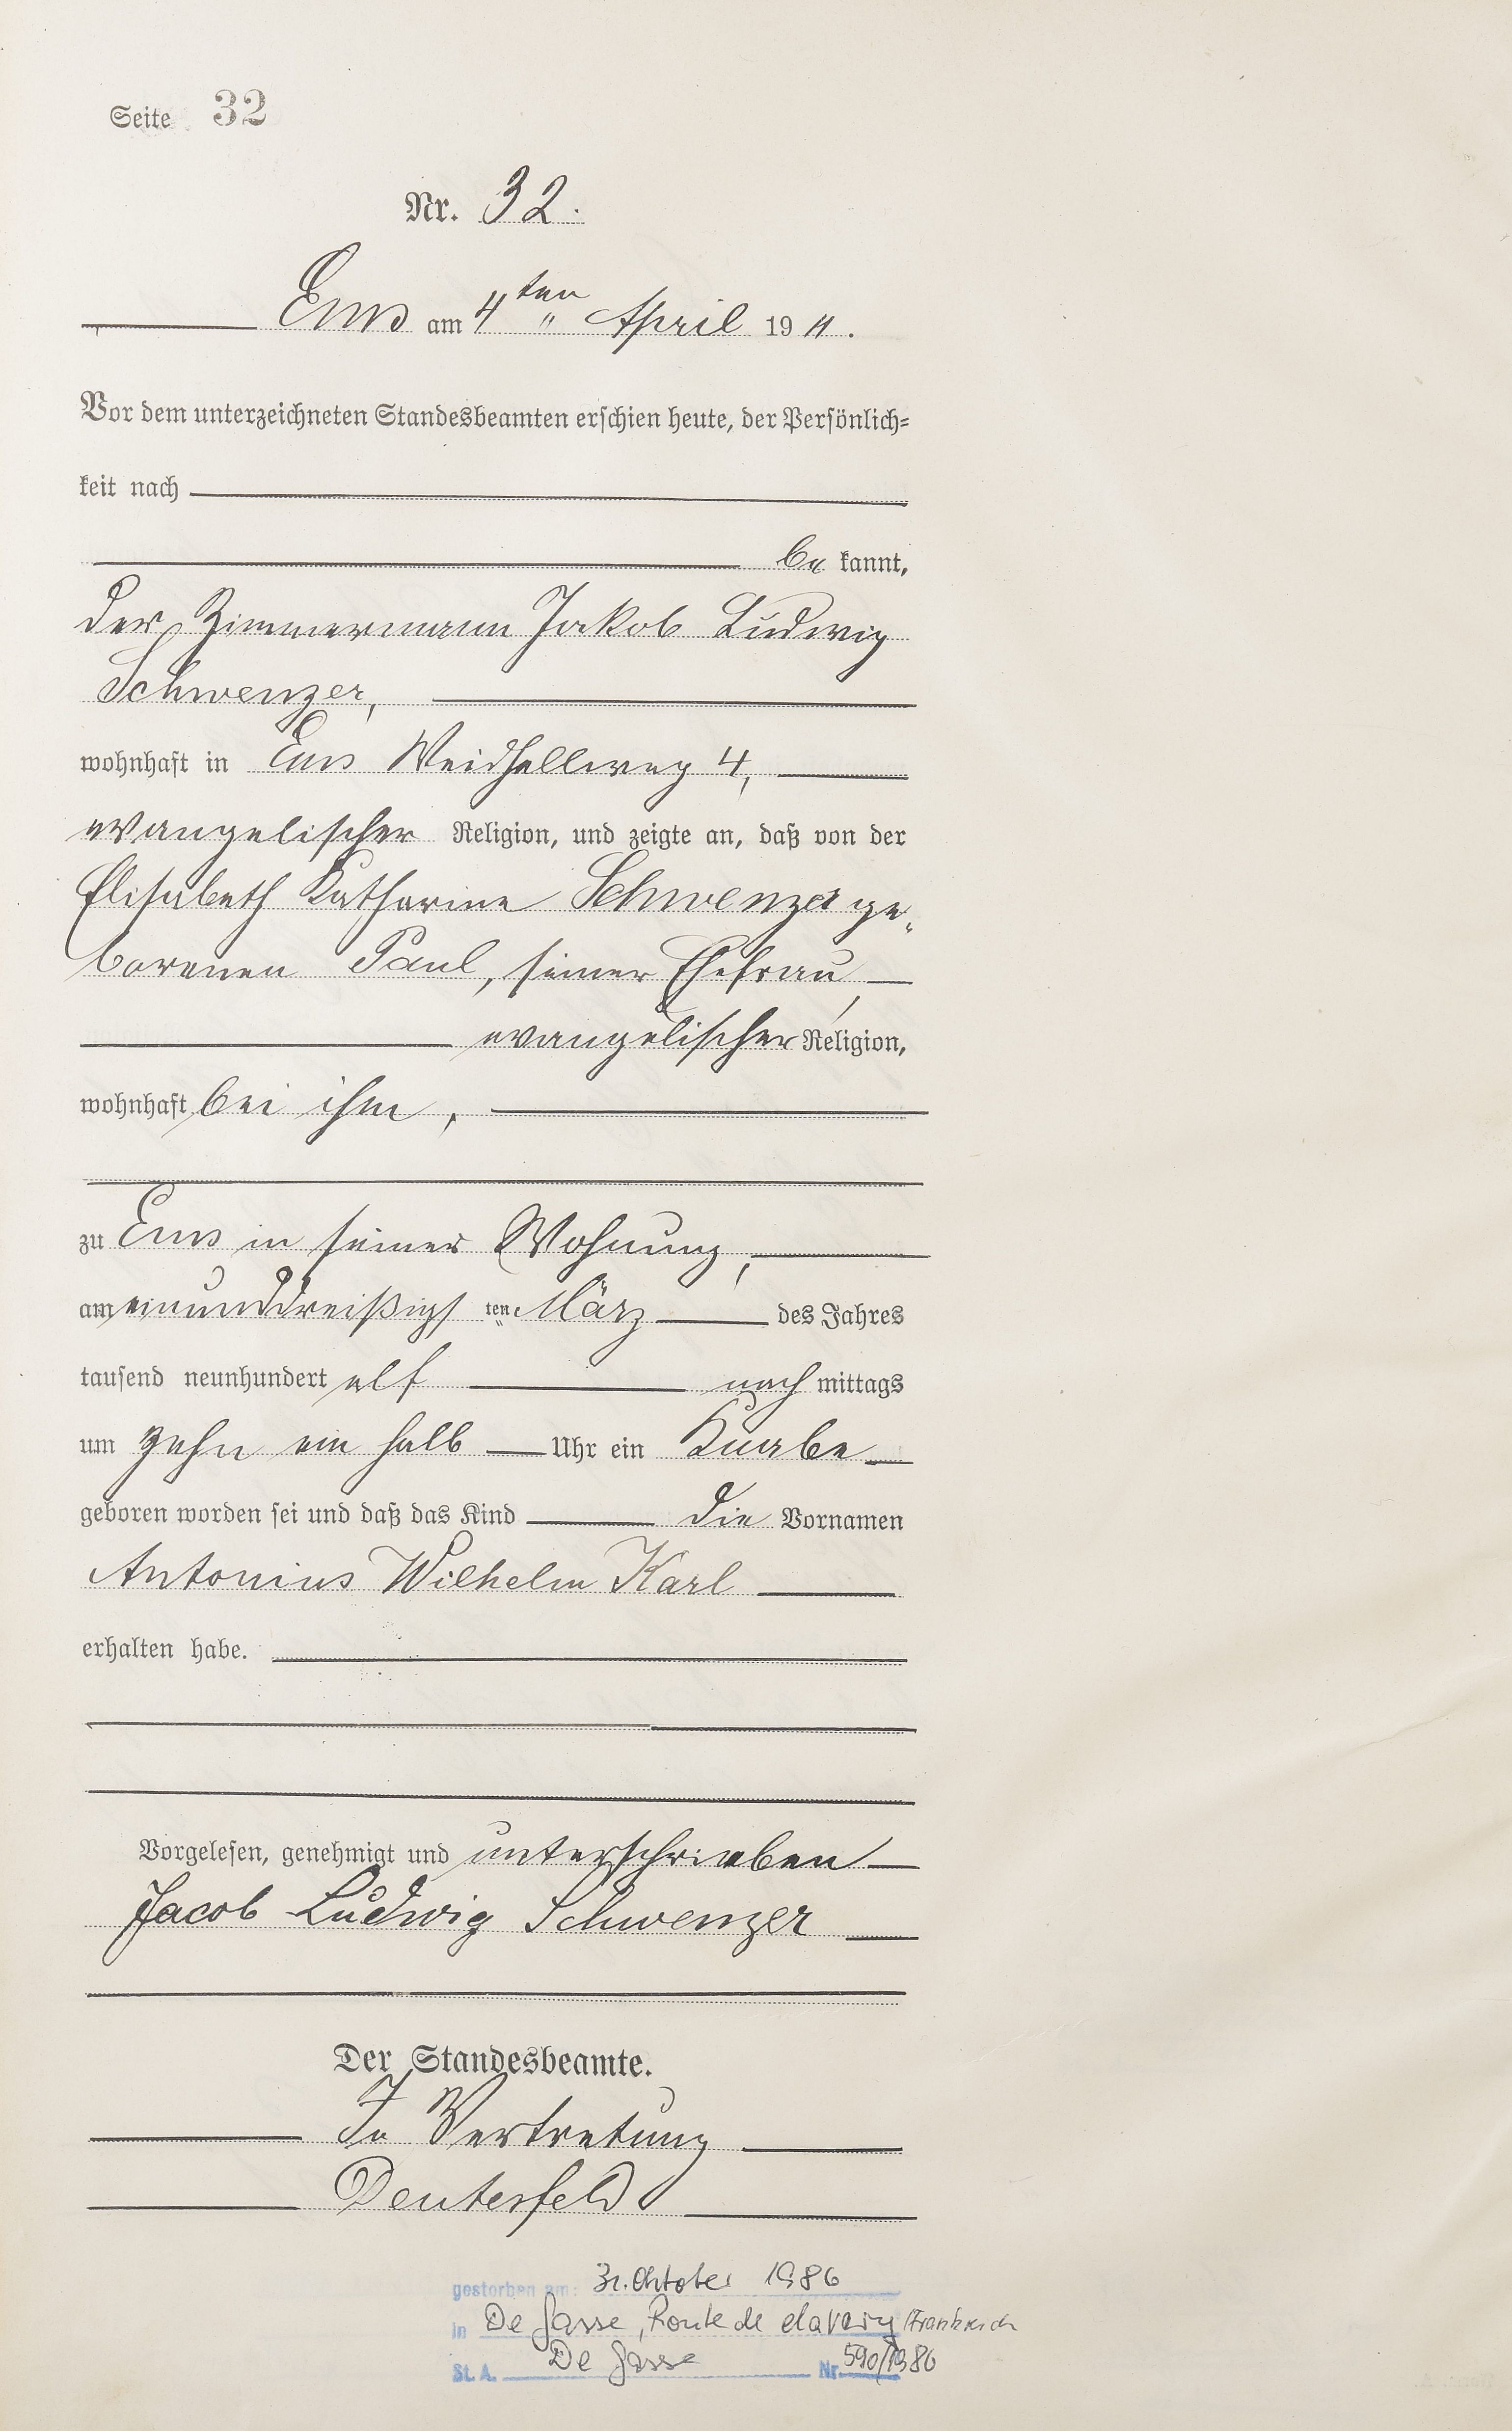 Seite 32
Nr. 32.
Ems am 4ten April 1911.
Vor dem unterzeichneten Standesbeamten erschien heute, der Persönlich=
keit nach
be kannt,
der Zimmermann Jakob Ludwig
Schwenzer,
wohnhaft in Ems Weidhellweg 4,
evangelischer Religion, und zeigte an, daß von der
Elisabeth Katharine Schwenzer ge=
borenen Paul, seiner Ehefrau,
evangelischer Religion,
wohnhaft bei ihm,
zu Ems in seiner Wohnung,
am einunddreißigs ten März des Jahres
tausend neunhundert elf nach mittags
um zehn ein halb Uhr ein Knabe
geboren worden sei und daß das Kind die Vornamen
Antonius Wilhelm Karl
erhalten habe.
Vorgelesen, genehmigt und unterschrieben
Jacob Ludwig Schwenzer
Der Standesbeamte.
In Vertretung
Deutesfeld
gestorben am: 31. Oktober 1986
in De Gasse, Route de (Frankreich
St. A. De Gasse Nr. 590/1986